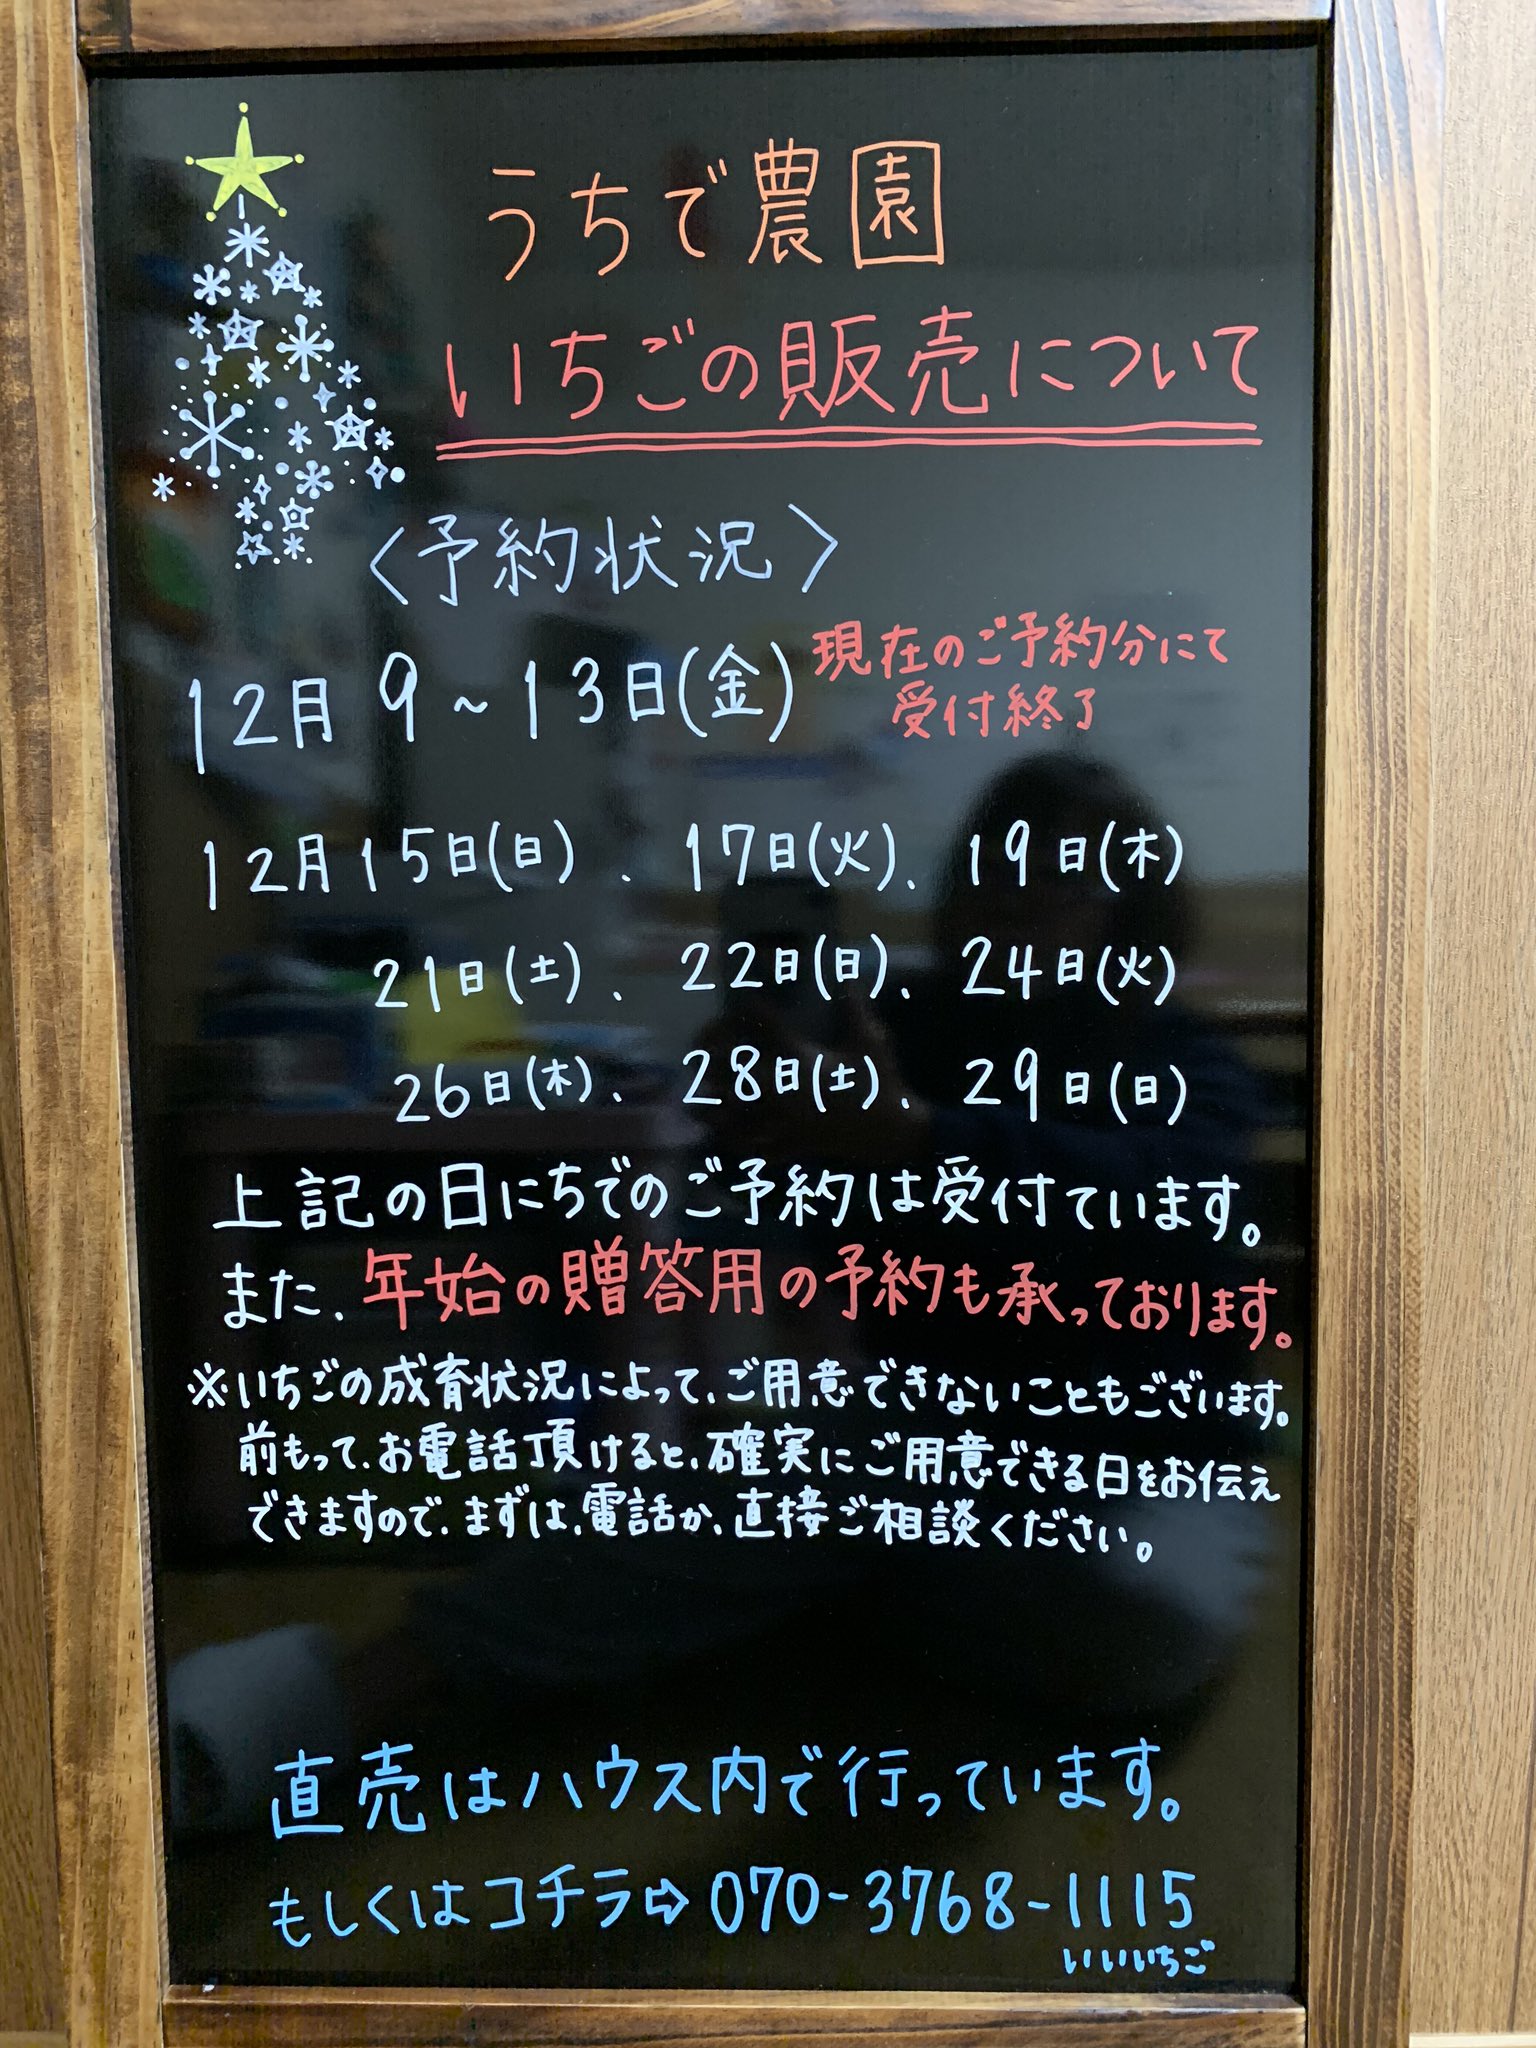 うちで農園
いちごの販売について
〈予約状況〉
12月 9～13日(金) 現在のご予約分にて
受付終了
12月15日(日)、17日(火)、19日(木)
21日(土)、22日(日)、24日(火)
26日(木)、28日(土)、29日(日)
上記の日にちでのご予約は受付ています。
また、年始の贈答用の予約も承っております。
※いちごの成育状況によって、ご用意できないこともございます。
前もって、お電話頂けると、確実にご用意できる日をお伝え
できますので、まずは、電話か、直接ご相談ください。
直売はハウス内で行っています。
もしくはコチラ⇨070-3768-1115
いいいちご